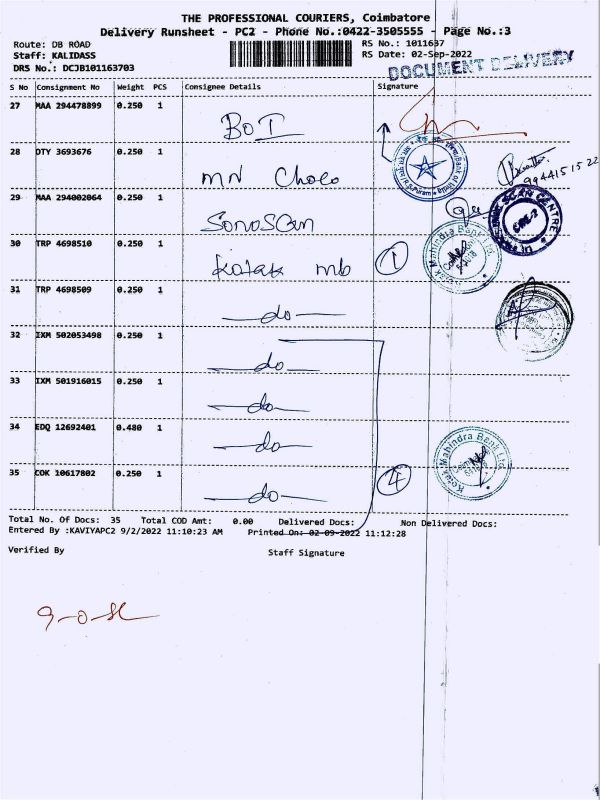 THE PROFESSIONAL COURIERS, Coimbatore
Delivery Runsheet - PC2 - Phone No.:0422-3505555 - Page No.:3
Route: DB ROAD
Staff: KALIDASS
DRS No.: DCJB101163703
RS No.: 1011637
RS Date: 02-Sep-2022
DOCUMENT DELIVERY
S No Consignment No Weight PCS Consignee Details Signature
27 MAA 294478899 0.250 1 BOI
28 DTY 3693676 0.250 1 MN Choco
994415 15 22
29 MAA 294002064 0.250 1 SonoScan
SCAN CENTRE
30 TRP 4698510 0.250 1 Kotak mb 1
Kotak Mahindra Bank Ltd.
31 TRP 4698509 0.250 1 do
32 IXM 502053498 0.250 1 do
33 IXM 501916015 0.250 1 do
34 EDQ 12692401 0.480 1 do
35 COK 10617802 0.250 1 do 4
Kotak Mahindra Bank Ltd.
Total No. Of Docs: 35 Total COD Amt: 0.00 Delivered Docs: Non Delivered Docs:
Entered By :KAVIYAPC2 9/2/2022 11:10:23 AM Printed On: 02-09-2022 11:12:28
Verified By Staff Signature